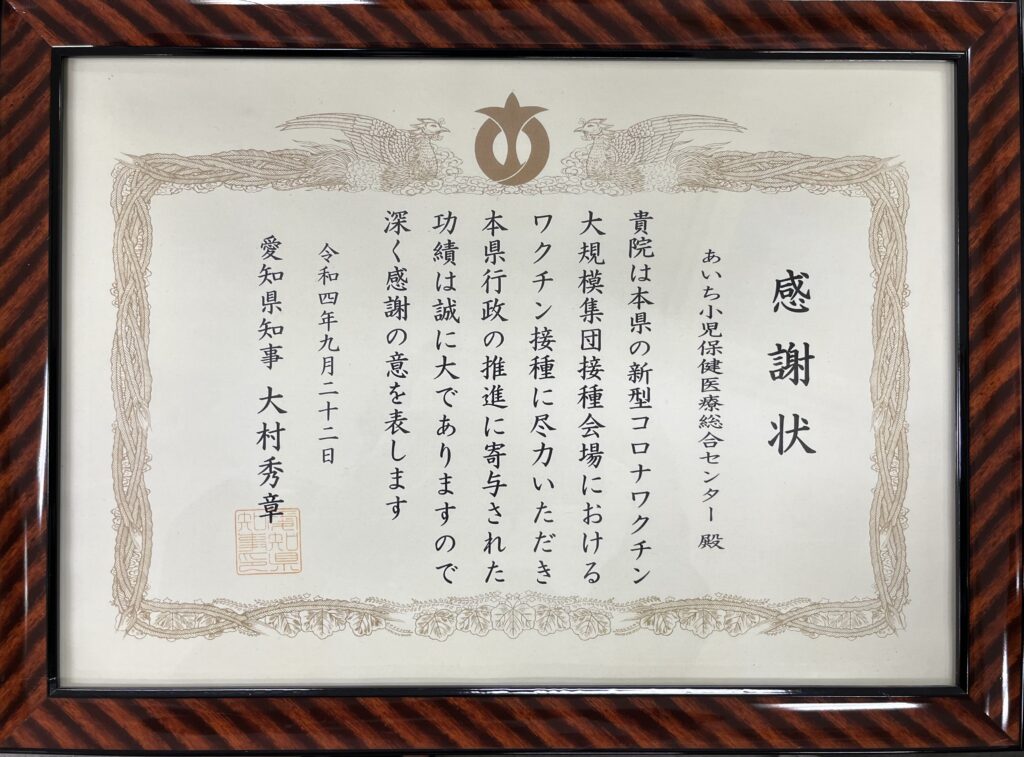 感謝状
あいち小児保健医療総合センター 殿
貴院は本県の新型コロナワクチン
大規模集団接種会場における
ワクチン接種に尽力いただき
本県行政の推進に寄与された
功績は誠に大でありますので
深く感謝の意を表します
令和四年九月二十二日
愛知県知事 大村秀章
愛知県
知事印